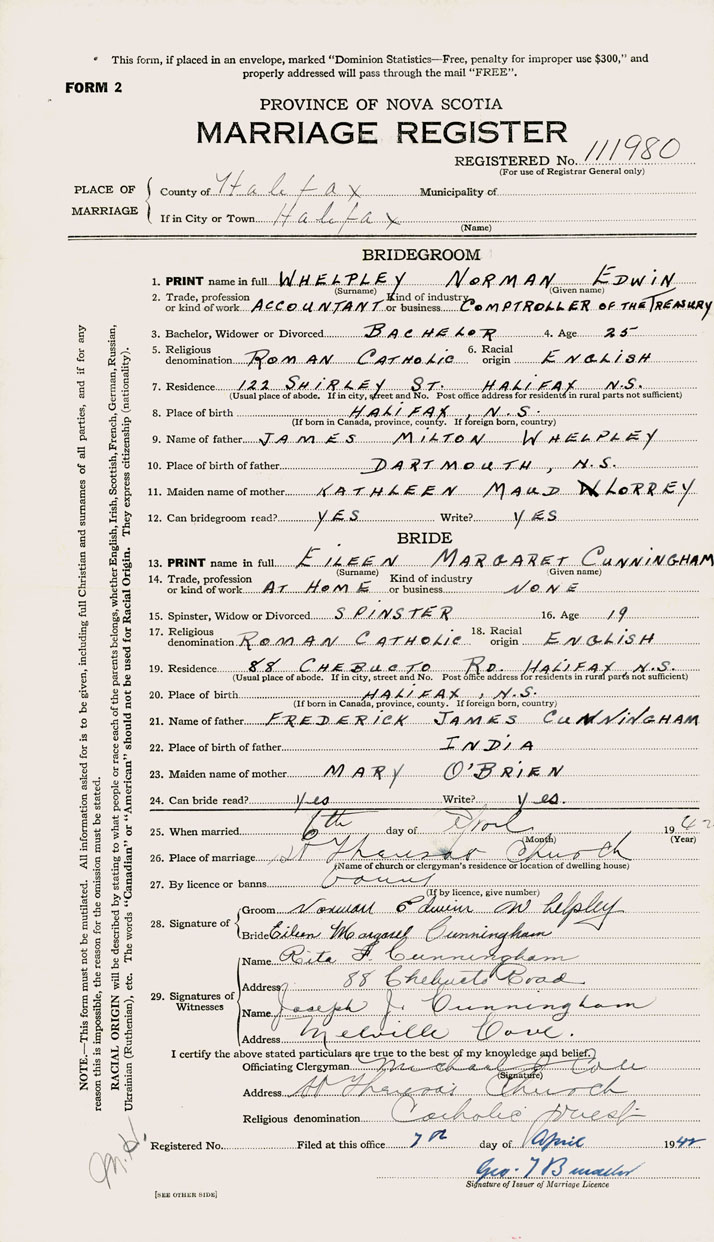 This form, if placed in an envelope, marked "Dominion Statistics—Free, penalty for improper use $300," and
properly addressed will pass through the mail "FREE".
FORM 2
PROVINCE OF NOVA SCOTIA
MARRIAGE REGISTER
REGISTERED No. 111980
(For use of Registrar General only)
PLACE OF MARRIAGE
County of Halifax Municipality of
If in City or Town Halifax
(Name)
BRIDEGROOM
1. PRINT name in full WHELPLEY NORMAN EDWIN
(Surname) (Given name)
2. Trade, profession or kind of work ACCOUNTANT Kind of industry or business COMPTROLLER OF THE TREASURY
3. Bachelor, Widower or Divorced BACHELOR 4. Age 25
5. Religious denomination ROMAN CATHOLIC 6. Racial origin ENGLISH
7. Residence 122 SHIRLEY ST. HALIFAX N.S.
(Usual place of abode. If in city, street and No. Post office address for residents in rural parts not sufficient)
8. Place of birth HALIFAX, N.S.
(If born in Canada, province, county. If foreign born, country)
9. Name of father JAMES MILTON WHELPLEY
10. Place of birth of father DARTMOUTH, N.S.
11. Maiden name of mother KATHLEEN MAUD LORREY
12. Can bridegroom read? YES Write? YES
BRIDE
13. PRINT name in full EILEEN MARGARET CUNNINGHAM
(Surname) (Given name)
14. Trade, profession or kind of work AT HOME Kind of industry or business NONE
15. Spinster, Widow or Divorced SPINSTER 16. Age 19
17. Religious denomination ROMAN CATHOLIC 18. Racial origin ENGLISH
19. Residence 88 CHEBUCTO RD. HALIFAX, N.S.
(Usual place of abode. If in city, street and No. Post office address for residents in rural parts not sufficient)
20. Place of birth HALIFAX, N.S.
(If born in Canada, province, county. If foreign born, country)
21. Name of father FREDERICK JAMES CUNNINGHAM
22. Place of birth of father INDIA
23. Maiden name of mother MARY O'BRIEN
24. Can bride read? Yes Write? Yes.
25. When married 6th day of April 1942
(Month) (Year)
26. Place of marriage St Theresas Church
(Name of church or clergyman's residence or location of dwelling house)
27. By licence or banns banns
(If by licence, give number)
28. Signature of
Groom Norman Edwin Whelpley
Bride Eileen Margaret Cunningham
29. Signatures of Witnesses
Name Rita F. Cunningham
Address 88 Chebucto Road
Name Joseph J. Cunningham
Address Melville Cove.
I certify the above stated particulars are true to the best of my knowledge and belief.
Officiating Clergyman Michael Cole
(Signature)
Address St Theresa's Church
Religious denomination Catholic priest
Registered No. Filed at this office 7th day of April 1942
Geo. T
Signature of Issuer of Marriage Licence
[SEE OTHER SIDE]
NOTE.—This form must not be mutilated. All information asked for is to be given, including full Christian and surnames of all parties, and if for any
reason this is impossible, the reason for the omission must be stated.
RACIAL ORIGIN will be described by stating to what people or race each of the parents belongs, whether English, Irish, Scottish, French, German, Russian,
Ukrainian (Ruthenian), etc. The words "Canadian" or "American" should not be used for Racial Origin. They express citizenship (nationality).